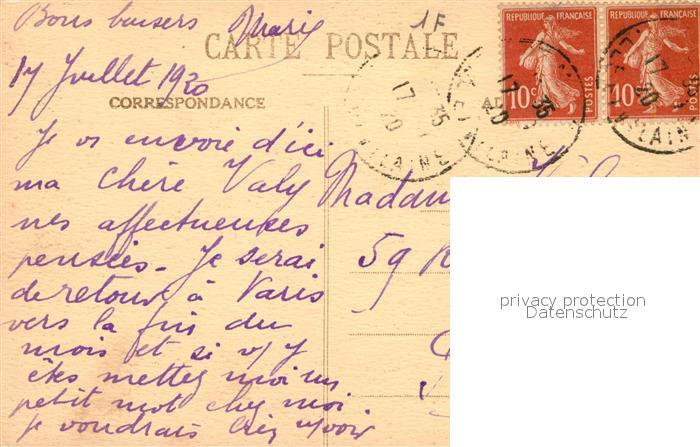 Bons baisers Marie
1F
CARTE POSTALE
17 Juillet 1920
CORRESPONDANCE
AD
RÉPUBLIQUE FRANÇAISE
10c
POSTES
RÉPUBLIQUE FRANÇAISE
10c
POSTES
17 35
20
VILAINE
Je vs envoie d'ici
ma chère Valy
mes affectueuses
pensées. Je serai
de retour à Paris
vers la fin du
mois et si vs y
êtes mettez moi un
petit mot chez moi
je voudrais bien vs voir
Madame
59 R
privacy protection
Datenschutz